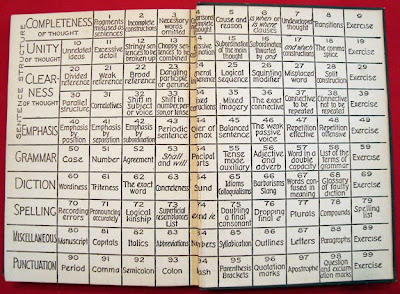 SENTENCE STRUCTURE
COMPLETENESS
OF THOUGHT
1
Fragments
misused as
sentences
2
Incomplete
constructions
3
Necessary
words
omitted
4
Comparisons
complete
thought
5
Cause and
reason
6
is when or
is where
clauses
7
Undeveloped
thought
8
Transitions
9
Exercise
UNITY OF
THOUGHT
10
Unrelated
ideas
11
Excessive
detail
12
Stringy sen-
tences to be
broken up
13
Choppy sen-
tences to be
combined
15
Subordination
of the main
thought
16
Subordination
thwarted by
and
17
and which
construction
18
The comma
splice
19
Exercise
CLEAR-
NESS
OF THOUGHT
20
Divided
reference
21
Weak
reference
22
Broad
reference
23
Dangling
participle
or gerund
25
Logical
Sequence
26
Squinting
modifier
27
Misplaced
word
28
Split
construction
29
Exercise
30
Parallel
structure
31
Correlatives
32
Shift in
subject
or voice
33
Shift in
person
or tense
35
Mixed
imagery
36
The exact
connective
37
Connective
to be
repeated
38
Connective
not to be
repeated
39
Exercise
EMPHASIS
40
Emphasis
by
position
41
Emphasis
by
separation
42
Emphasis
by
subordination
43
Periodic
sentence
45
Balanced
sentence
46
The weak
passive
voice
47
Repetition
effective
48
Repetition
offensive
49
Exercise
GRAMMAR
50
Case
51
Number
52
Agreement
53
Shall
and will
parts
55
Tense
mode
auxiliary
56
Adjective
and
adverb
57
Word in a
double
capacity
58
List of the
terms of
grammar
59
Exercise
DICTION
60
Wordiness
61
Triteness
62
The exact
word
63
Concreteness
Sound
65
Idioms
Colloquialisms
66
Barbarisms
Slang
67
Words con-
fused in
meaning
68
Glossary
of faulty
diction
69
Exercise
SPELLING
70
Recording
errors
71
Pronouncing
accurately
72
Logical
kinship
73
Superficial
resemblances
List
75
Doubling a
final
consonant
76
Dropping
final e
77
Plurals
78
Compounds
79
Spelling
list
MISCELLANEOUS
80
Manuscript
81
Capitals
82
Italics
83
Abbreviations
Numbers
85
Syllabication
86
Outlines
87
Letters
88
Paragraphs
89
Exercise
PUNCTUATION
90
Period
91
Comma
92
Semicolon
93
Colon
Dash
95
Parenthesis
Brackets
96
Quotation
marks
97
Apostrophe
98
Question
and excla-
mation marks
99
Exercise